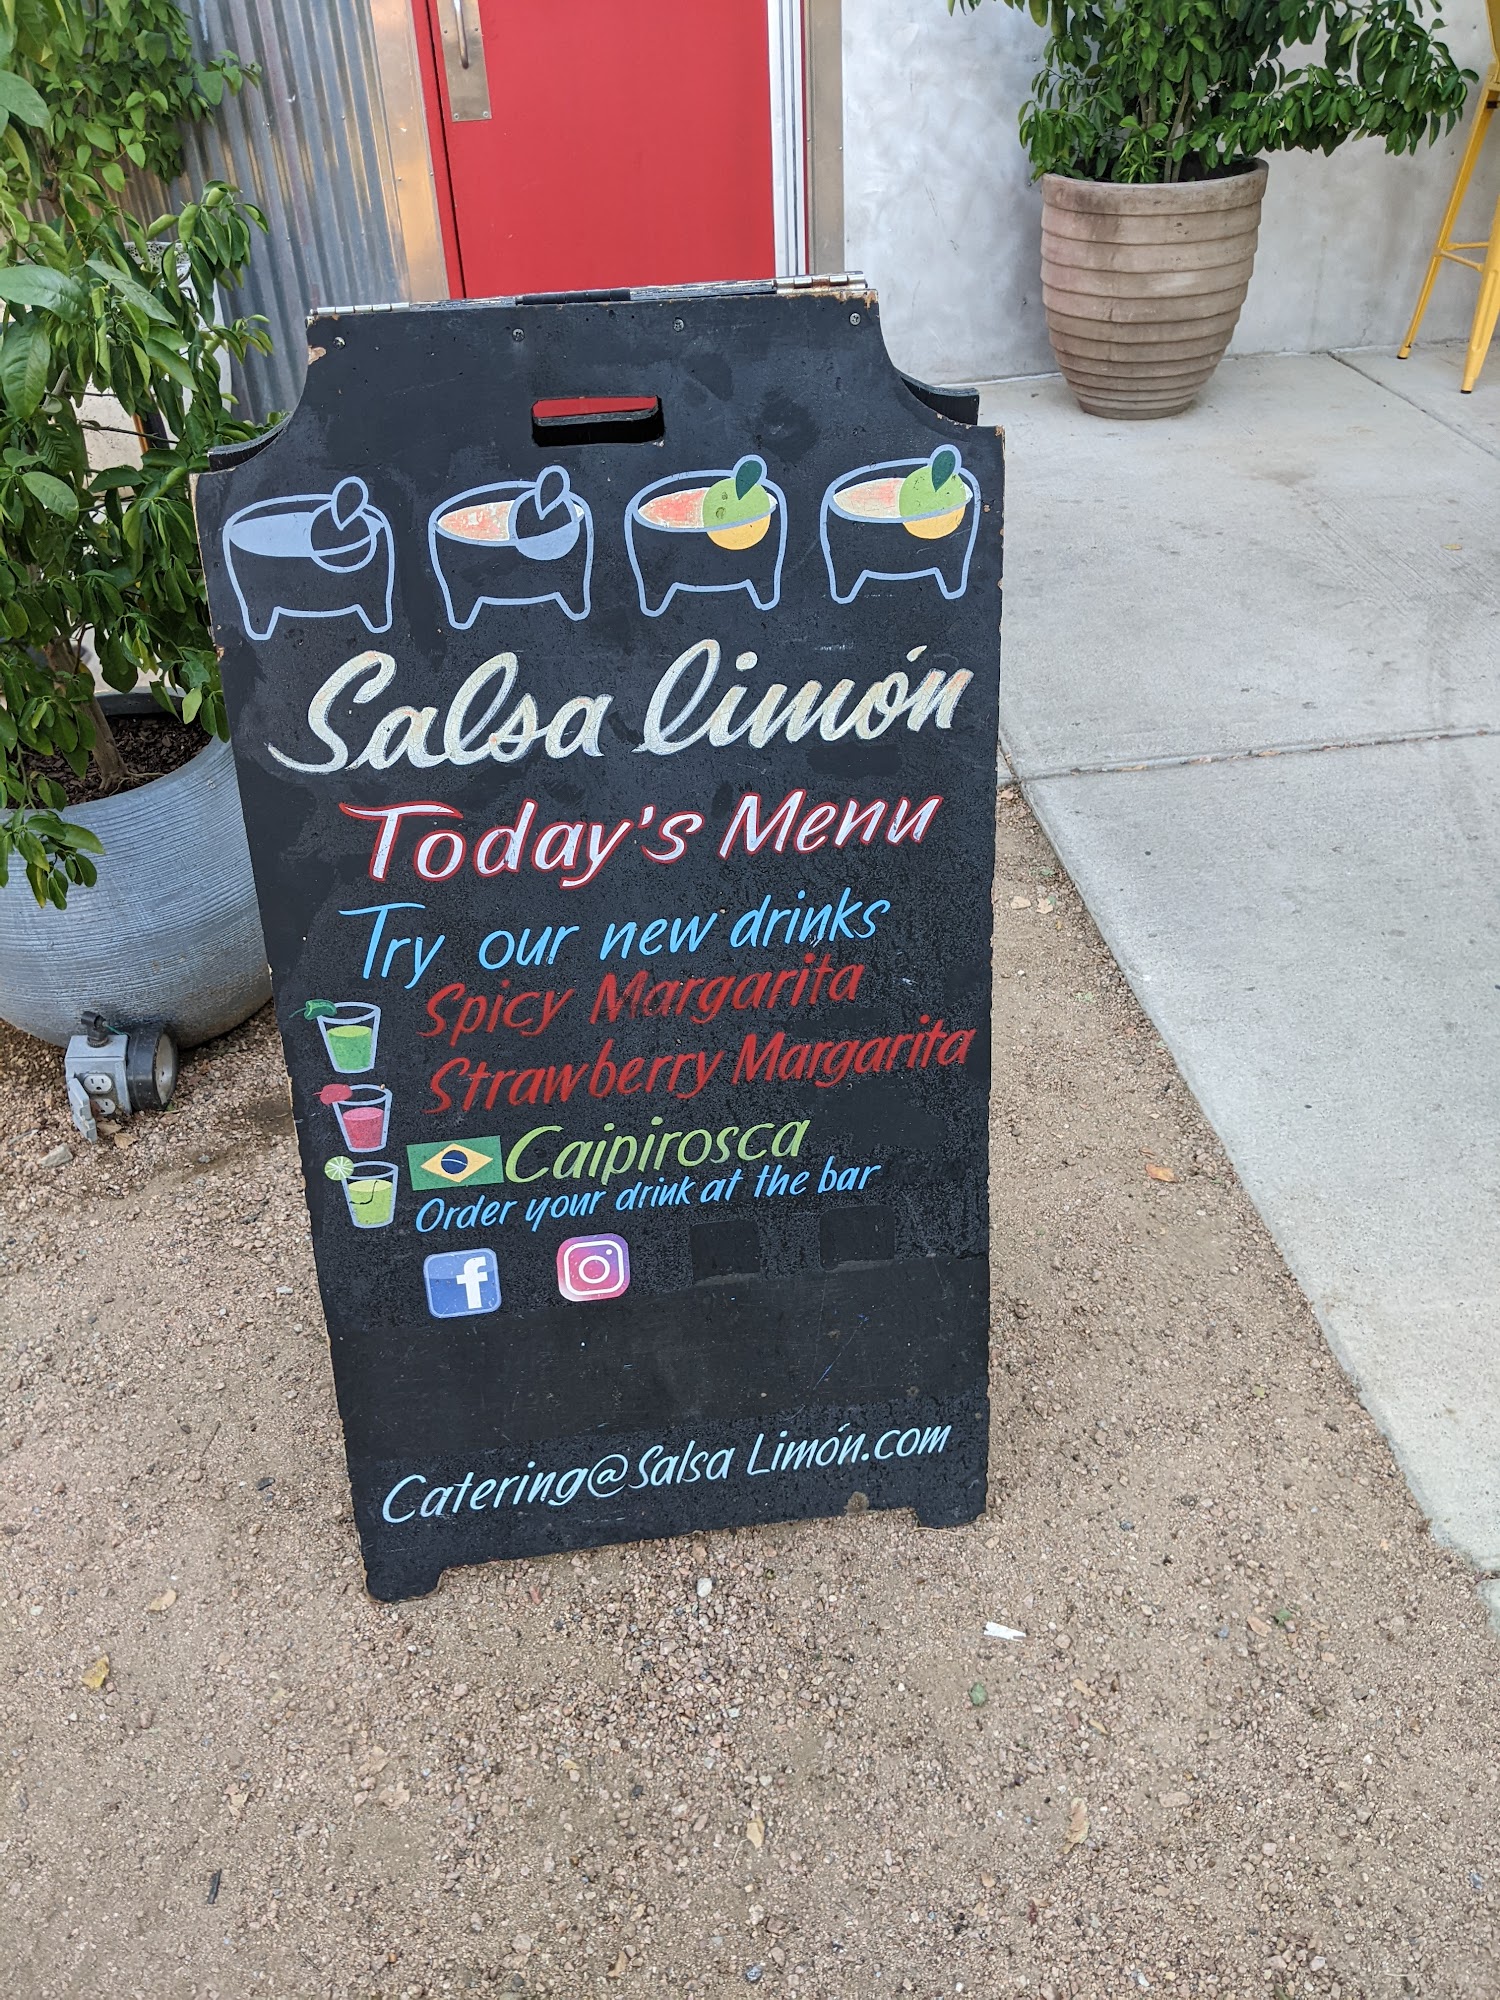 Salsa limón
Today's Menu
Try our new drinks
Spicy Margarita
Strawberry Margarita
Caipirosca
Order your drink at the bar
f
Catering@Salsa Limón.com